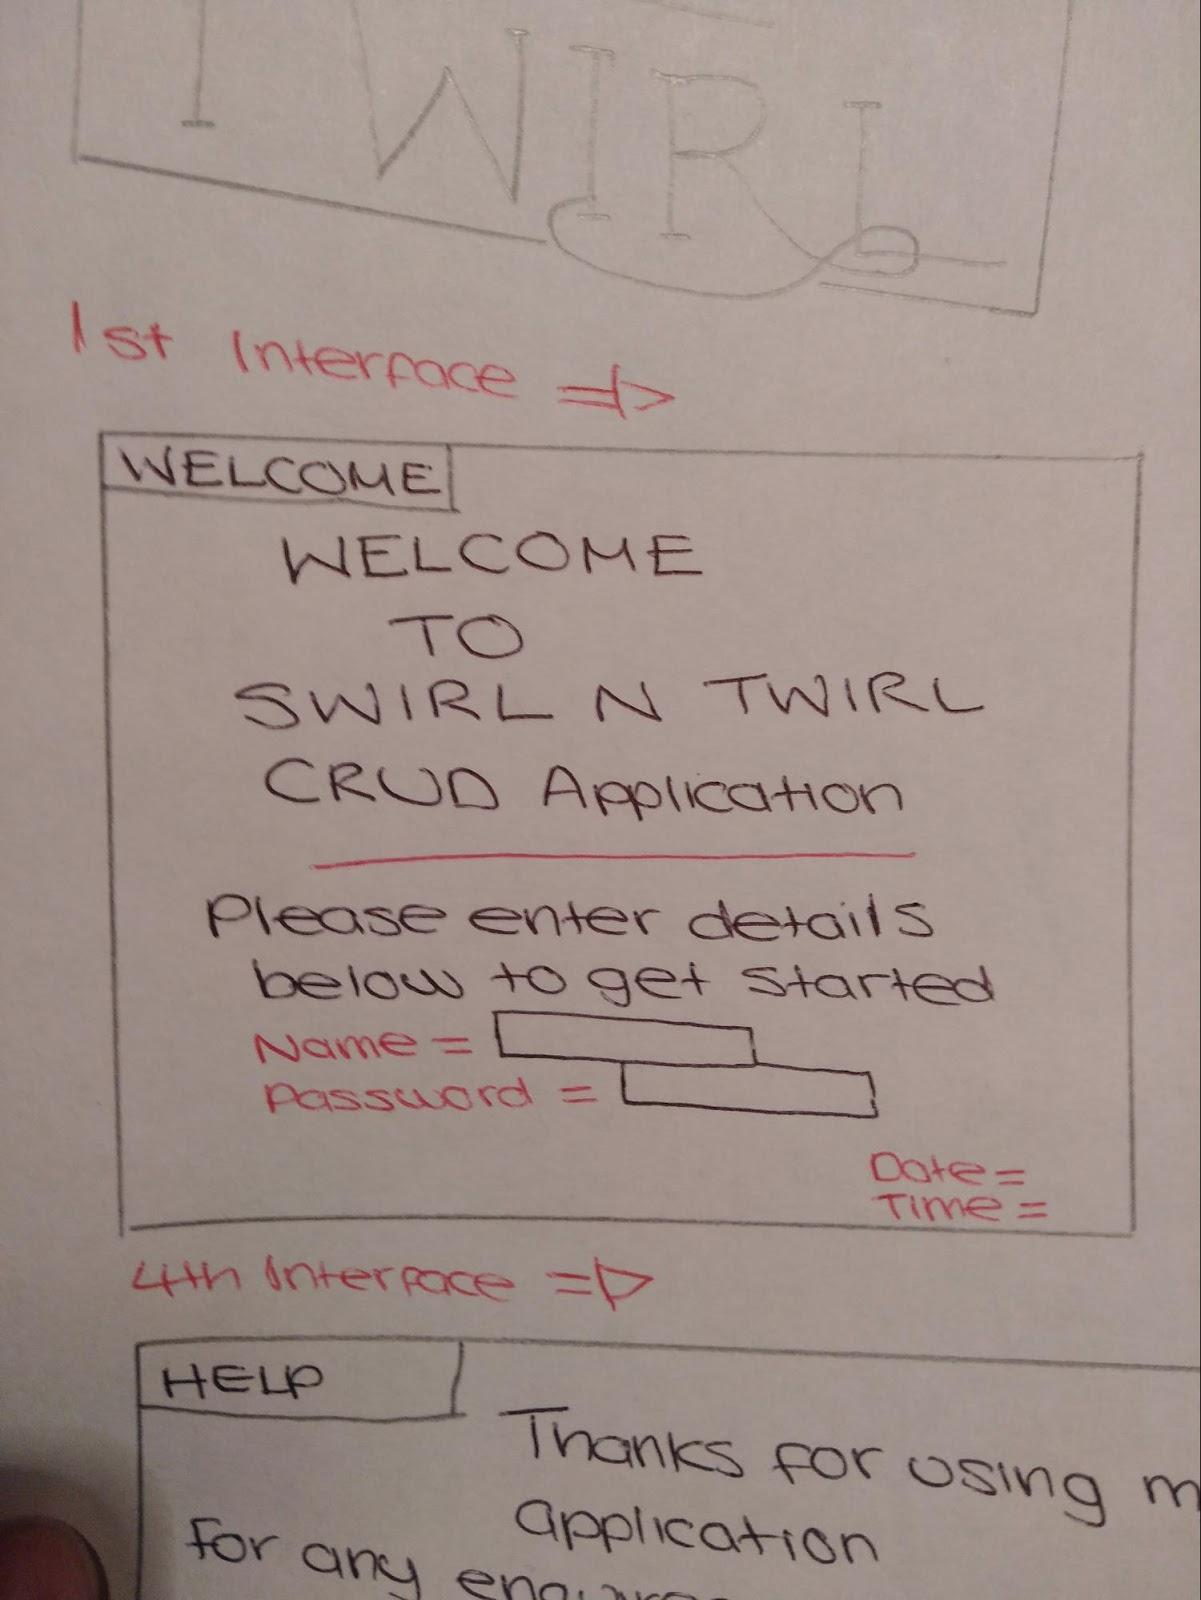 TWIRL
1st Interface =>
WELCOME
WELCOME
TO
SWIRL N TWIRL
CRUD Application
Please enter details
below to get started
Name =
Password =
Date =
Time =
4th Interface =>
HELP
Thanks for using
application
for any